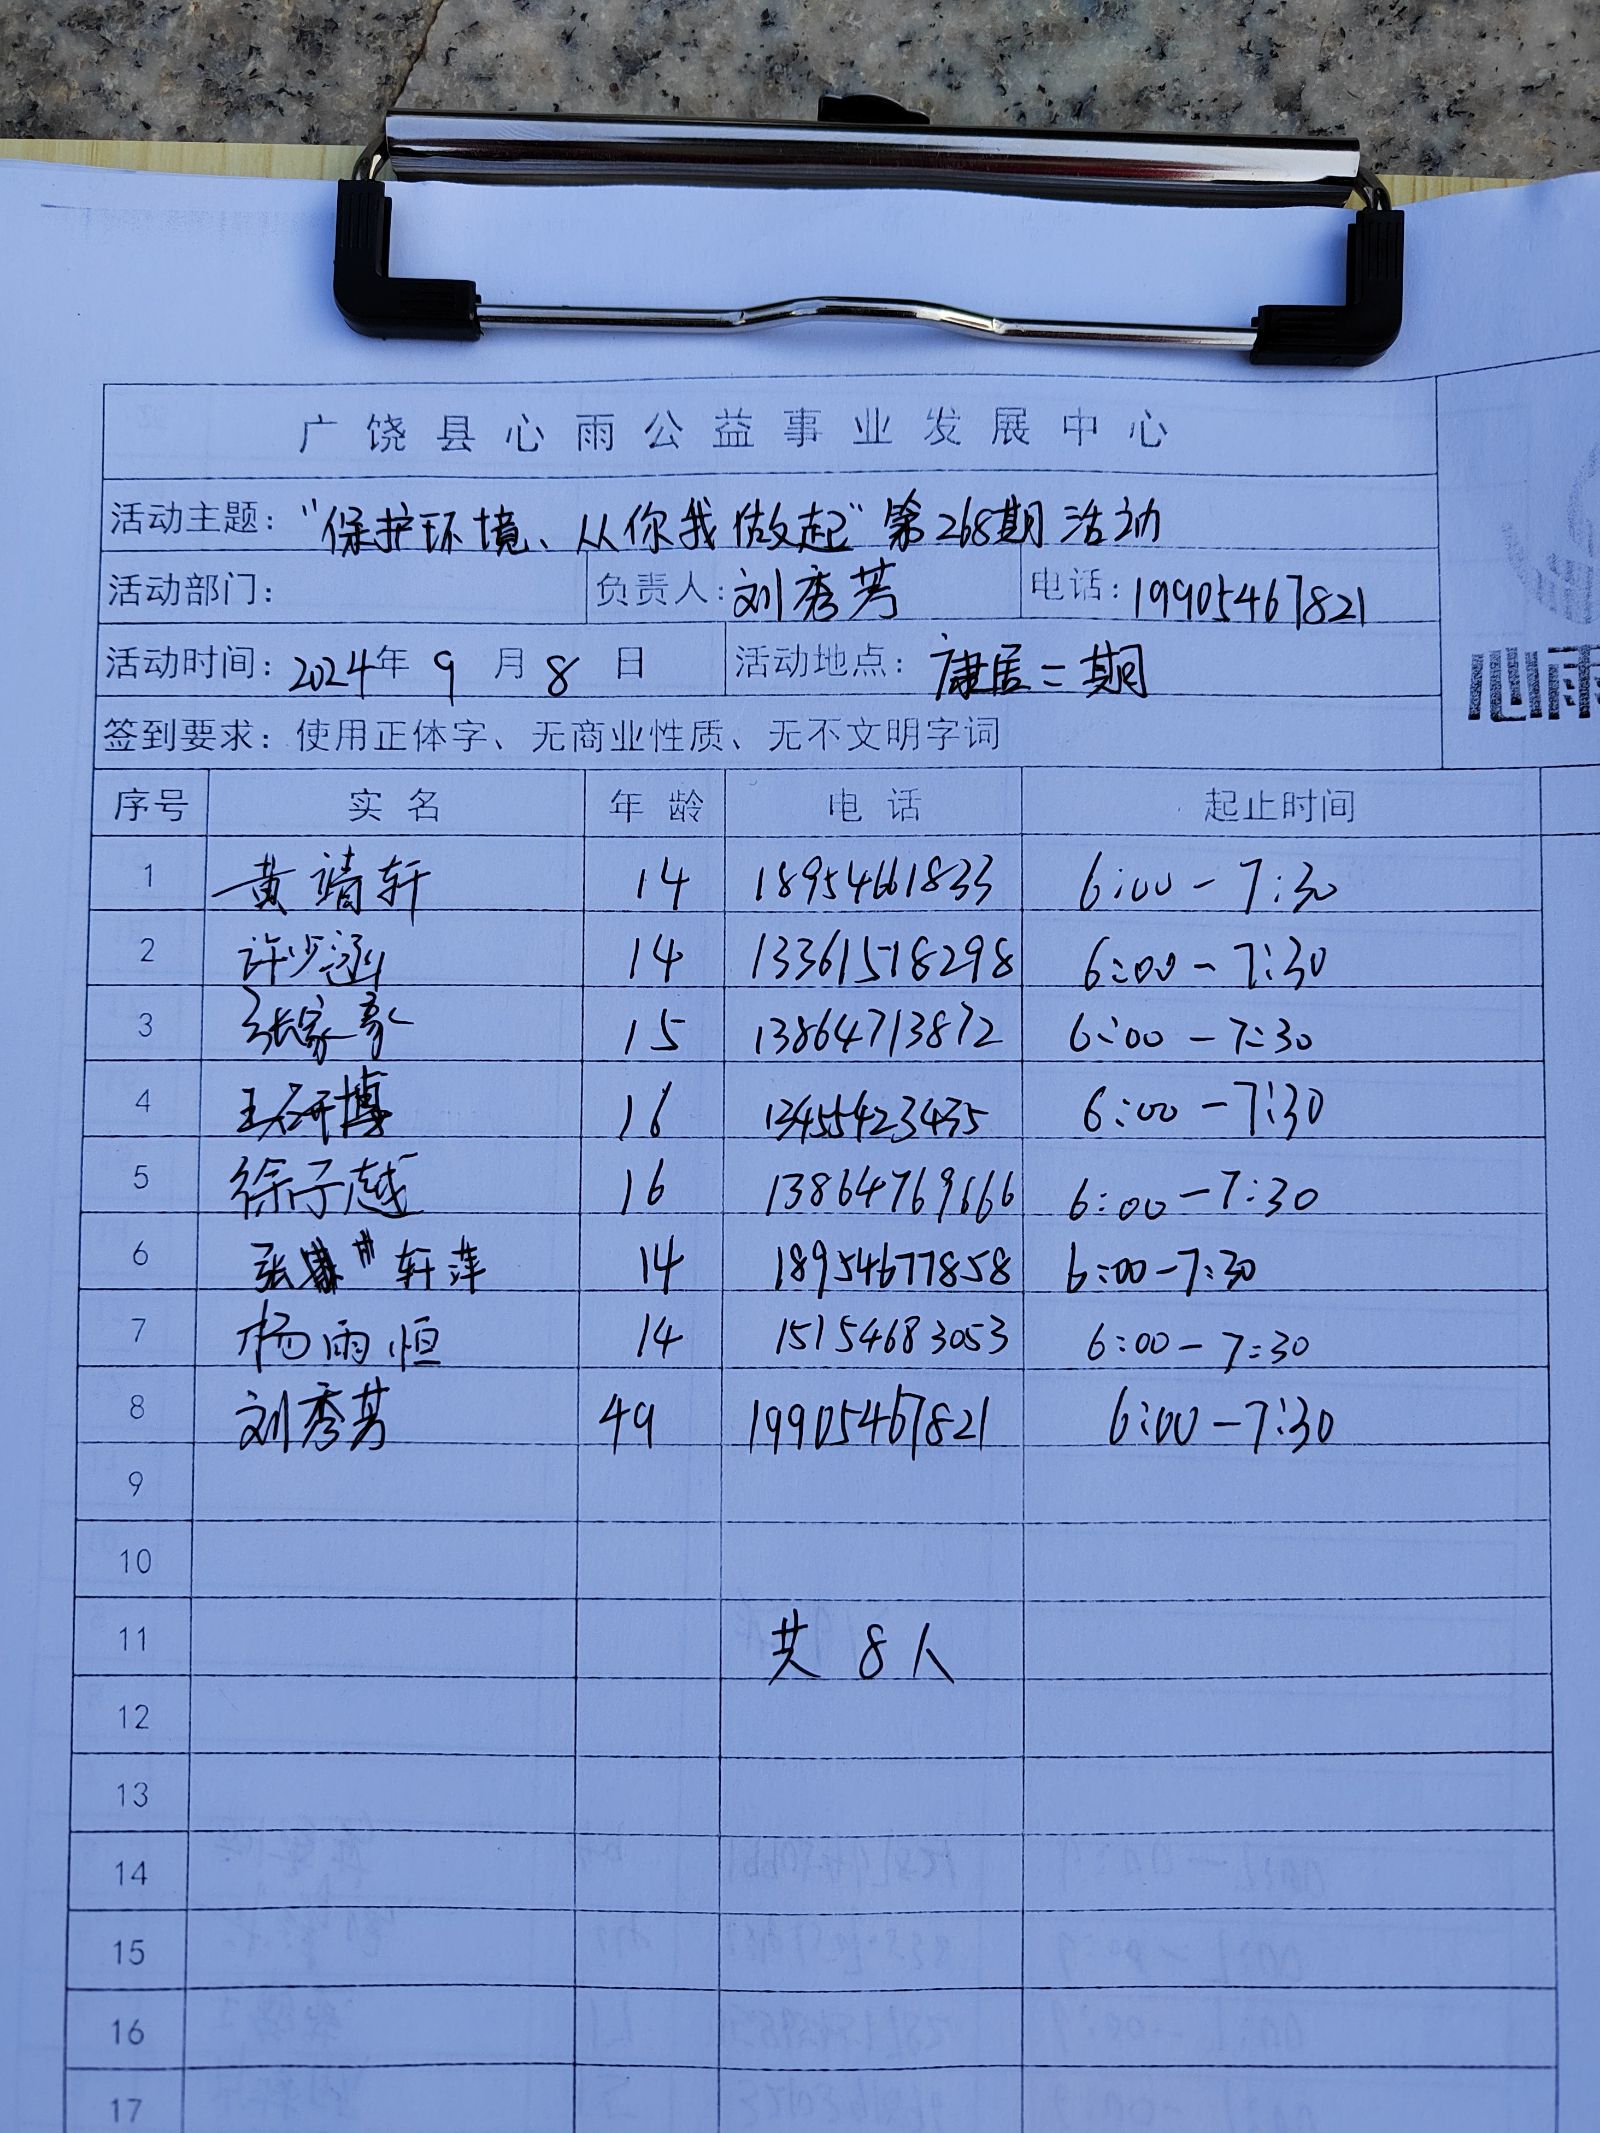 广饶县心雨公益事业发展中心
活动主题："保护环境、从你我做起"第268期活动
活动部门： 负责人：刘秀芳 电话：19905467821
活动时间：2024年9月8日 活动地点：康居二期
心雨
签到要求：使用正体字、无商业性质、无不文明字词
序号 实名 年龄 电话 起止时间
1 黄靖轩 14 18954661833 6:00-7:30
2 许少涵 14 13361518298 6:00-7:30
3 张家豪 15 13864713872 6:00-7:30
4 王研博 16 13455423435 6:00-7:30
5 徐子越 16 13864769666 6:00-7:30
6 张轩萍 14 18954677858 6:00-7:30
7 杨雨恒 14 15154683053 6:00-7:30
8 刘秀芳 49 19905467821 6:00-7:30
9
10
11 共8人
12
13
14
15
16
17